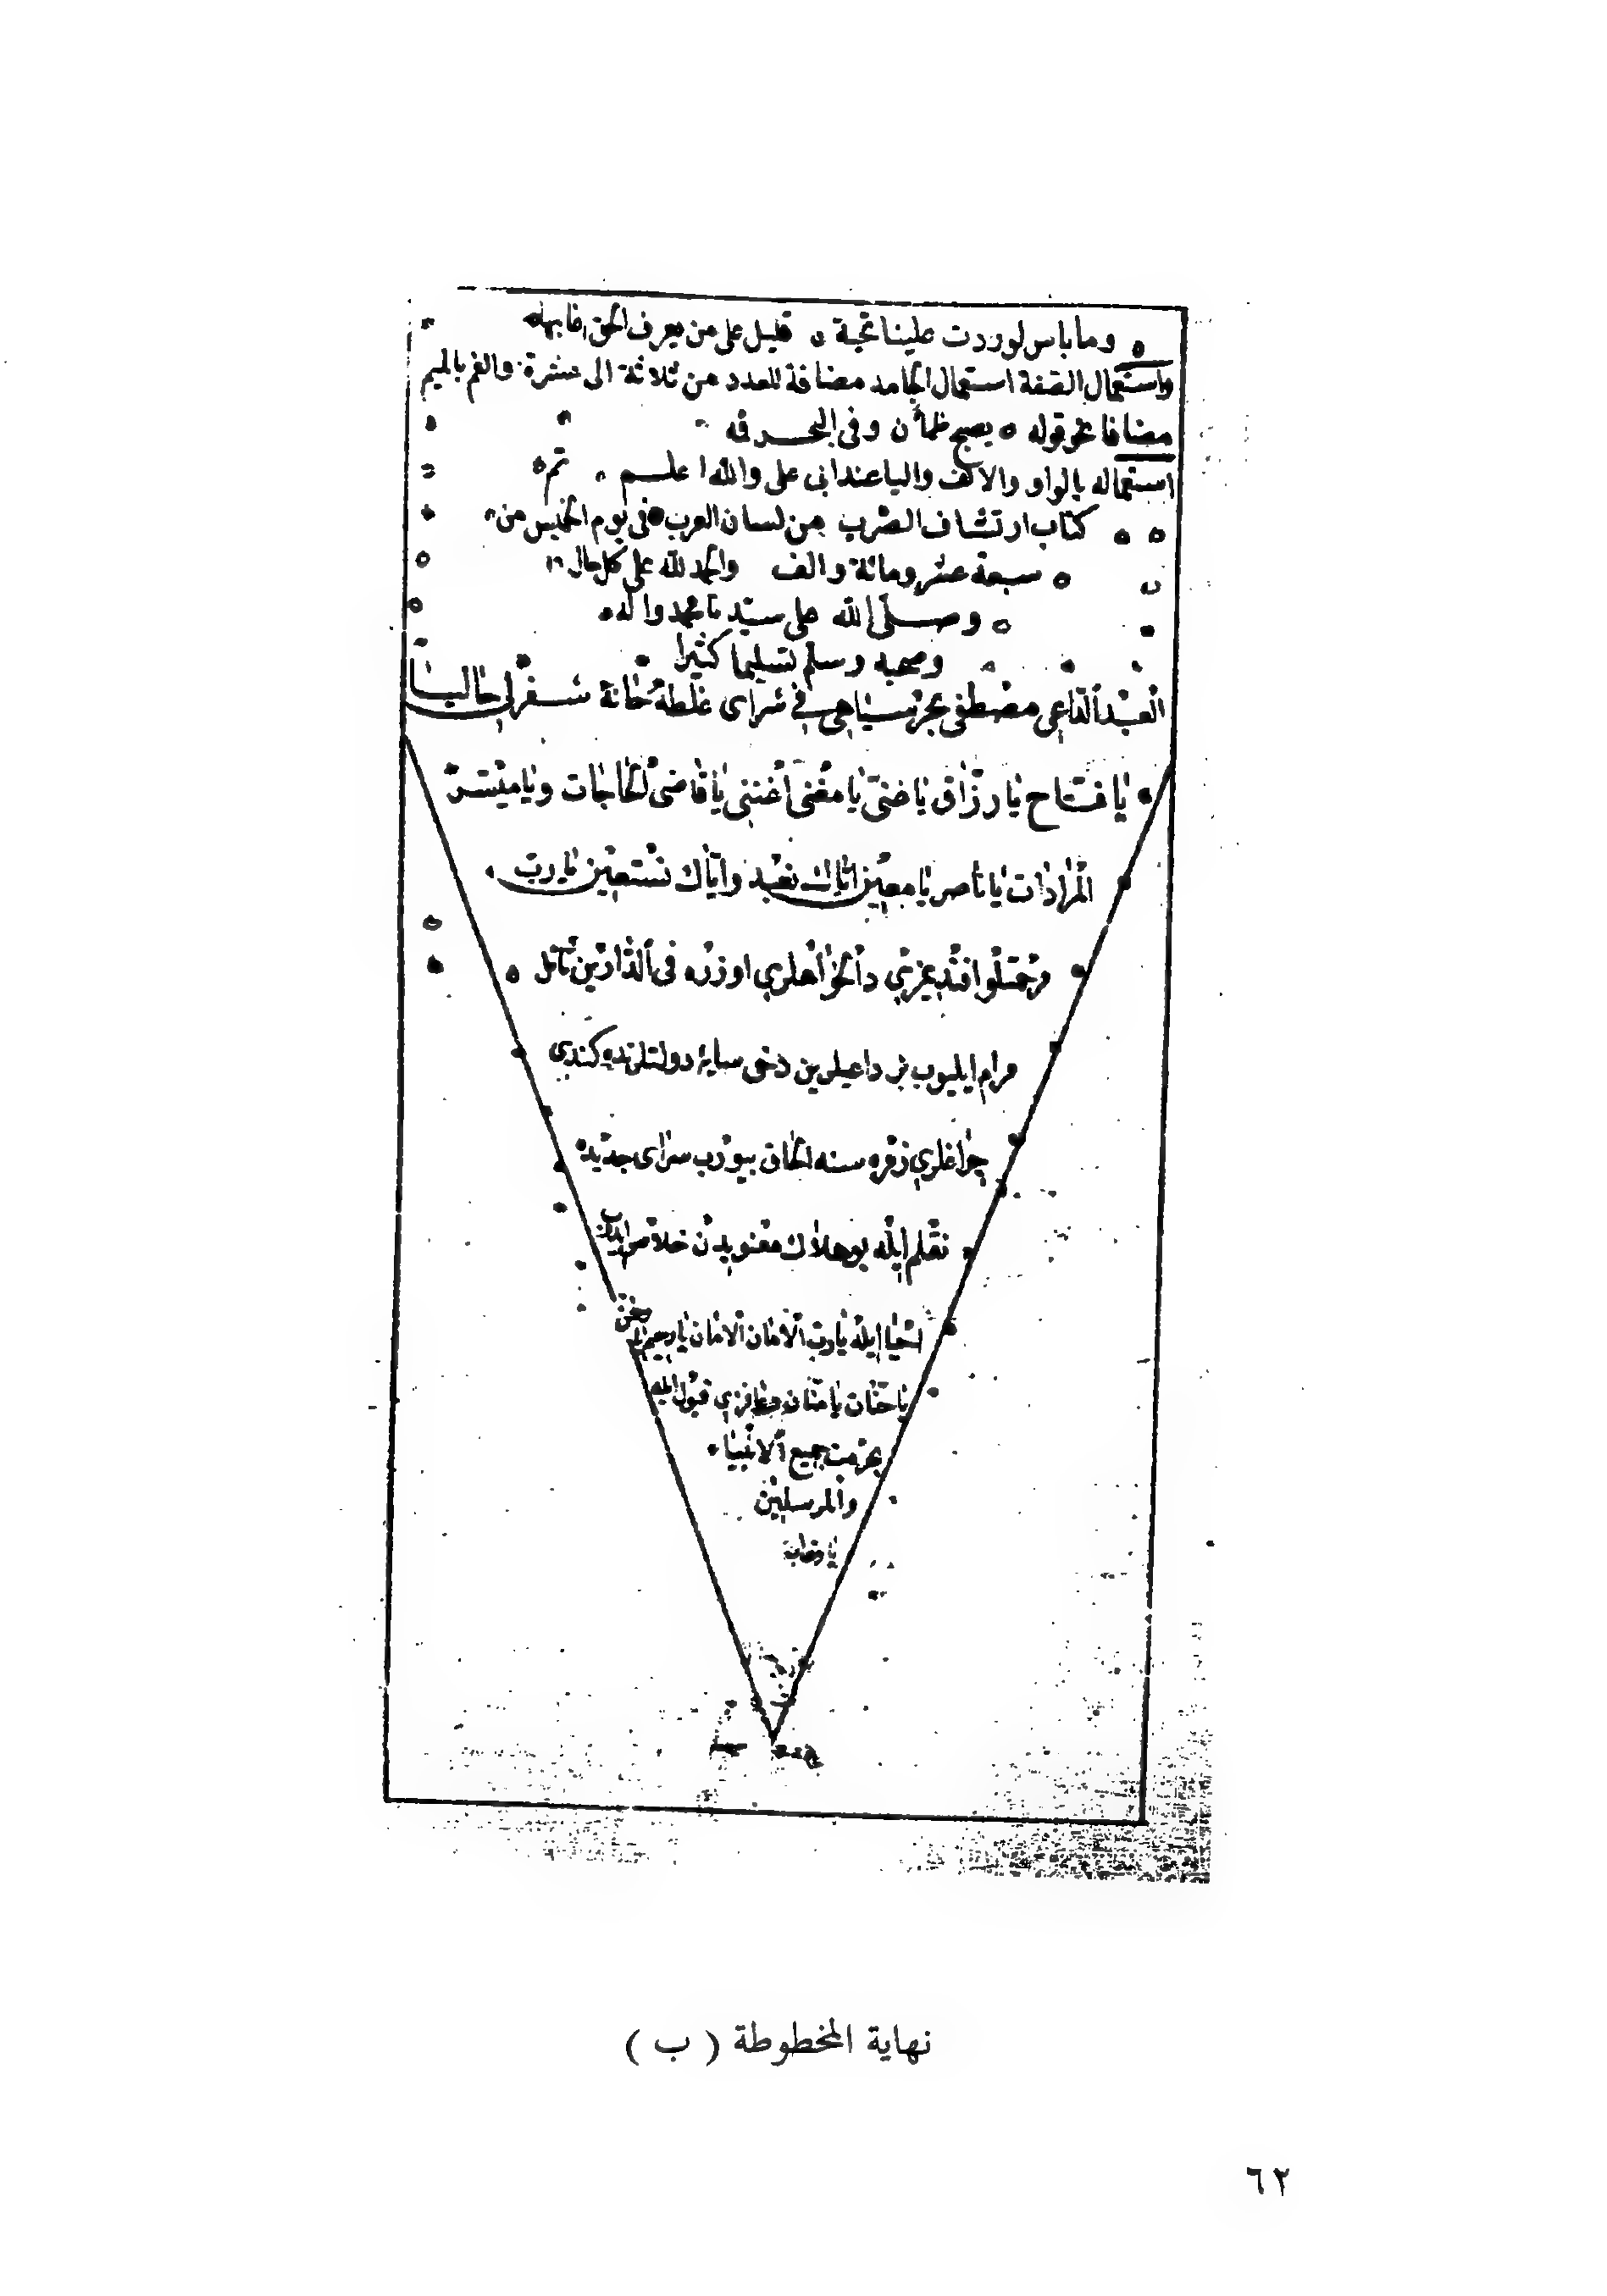 وما باس لو ردت علينا تحية قليل على من يعرف الحق عابها
واستعمال الصفة استعمال الجامد مضافة للعدد من ثلاثة الى عشرة والفم بالميم
مضافا نحو قوله يصبح ظمأن وفى البحر فه
استعماله بالواو والالف واليا عند ابى على والله اعلم تم
كتاب ارتشاف الضرب من لسان العرب فى يوم الخميس من
سبعة عشر ومائة والف والحمد لله على كل حال
وصلى الله على سيدنا محمد واله
وصحبه وسلم تسليما كثيرا
العبد الداعى مصطفى في سراى غلطه خانة سفرلى حاليا
يا فتاح يا رزاق يا غنى يا مغنى أغننى يا قاضى الحاجات ويا ميسر
المرادات يا ناصر يا معين اياك نعبد واياك نستعين يا رب
افند فى الدارين نائل
مرام ايليوب بز داعيلرين دخى سايۀ دولتلرنده كندى
چراغلرى زمره سنه الحاق بيورب سراى جديده
نقلم ايله بو هلاك معنويدن خلاص
احيا ايله يا رب الامان الامان يا رحيم
يا حنان يا منان قبول ايله
بحرمت جميع الانبياء
والمرسلين
نهاية المخطوطة ( ب )
٦٢